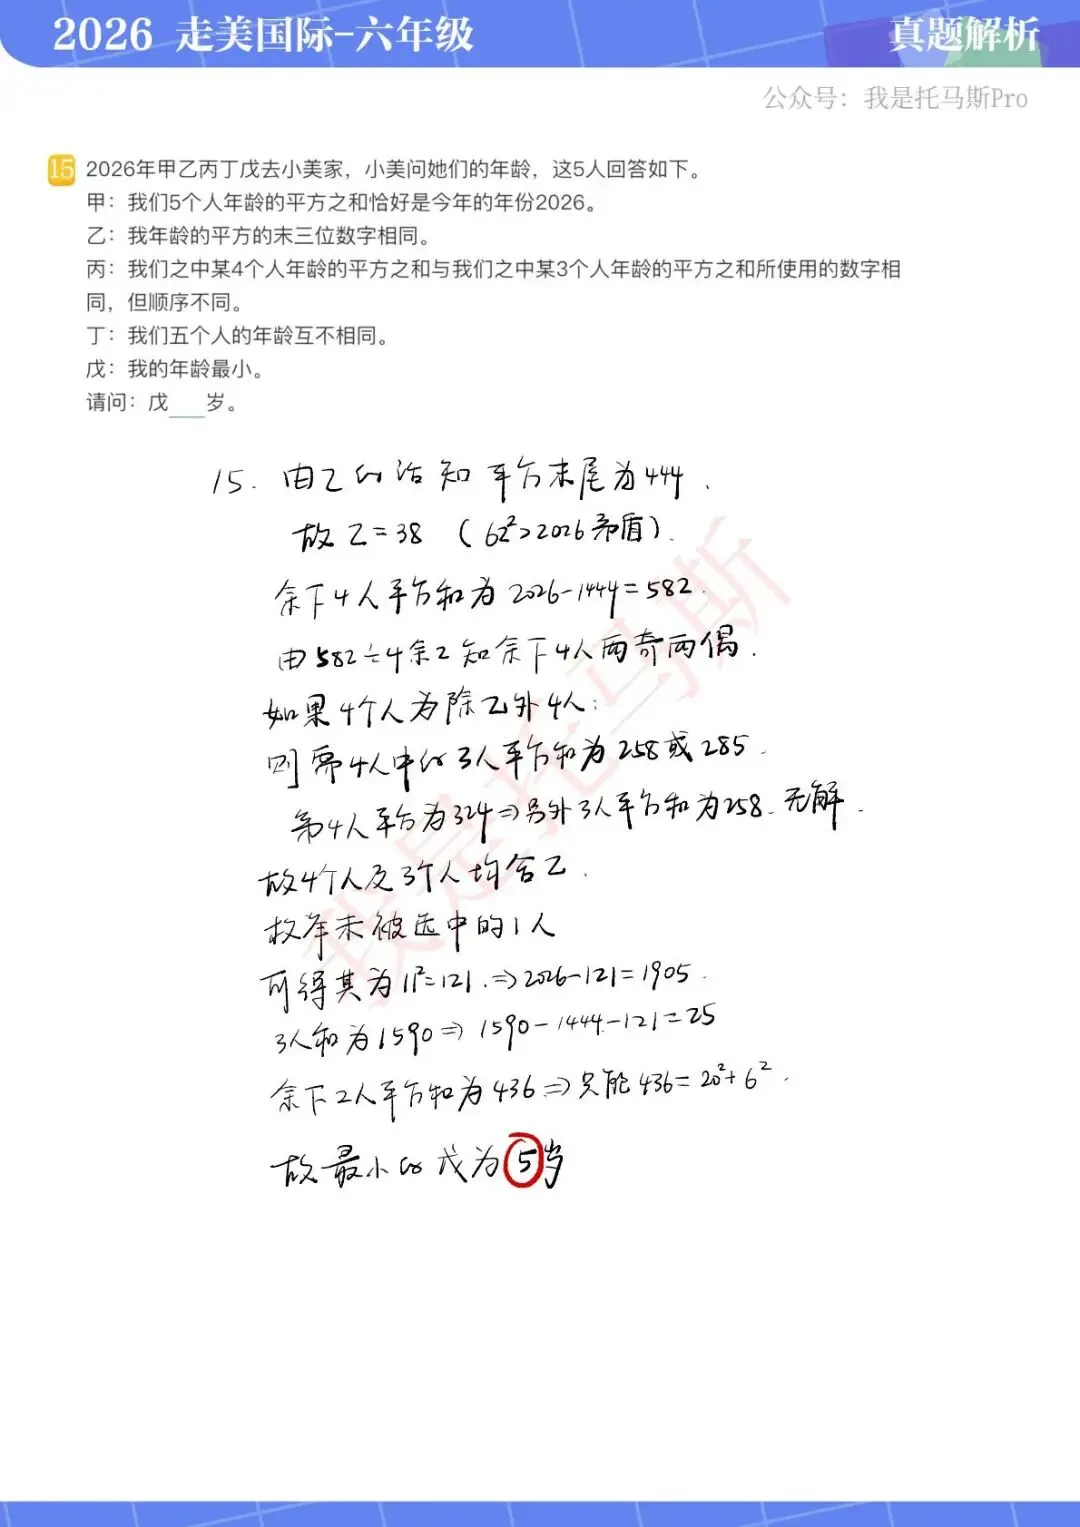 2026 走美国际-六年级
真题解析
公众号：我是托马斯Pro
15 2026年甲乙丙丁戊去小美家，小美问她们的年龄，这5人回答如下。
甲：我们5个人年龄的平方之和恰好是今年的年份2026。
乙：我年龄的平方的末三位数字相同。
丙：我们之中某4个人年龄的平方之和与我们之中某3个人年龄的平方之和所使用的数字相
同，但顺序不同。
丁：我们五个人的年龄互不相同。
戊：我的年龄最小。
请问：戊___岁。
15. 由乙的话知平方末尾为444.
故乙=38 (62²>2026矛盾).
余下4人平方和为2026-1444=582.
由582÷4余2知余下4人两奇两偶.
如果4个人为除乙外4人:
则需4人中的3人平方和为258或285.
第4人平方为324⇒另外3人平方和为258.无解.
故4个人及3个人均含乙.
枚举未被选中的1人
可得其为11²=121.⇒2026-121=1905.
3人和为1590⇒1590-1444-121=25
余下2人平方和为436⇒只能436=20²+6².
故最小的戊为5岁
我是托马斯